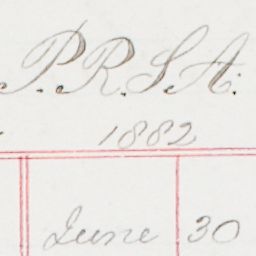 P.R.S.A.
1882
June 30